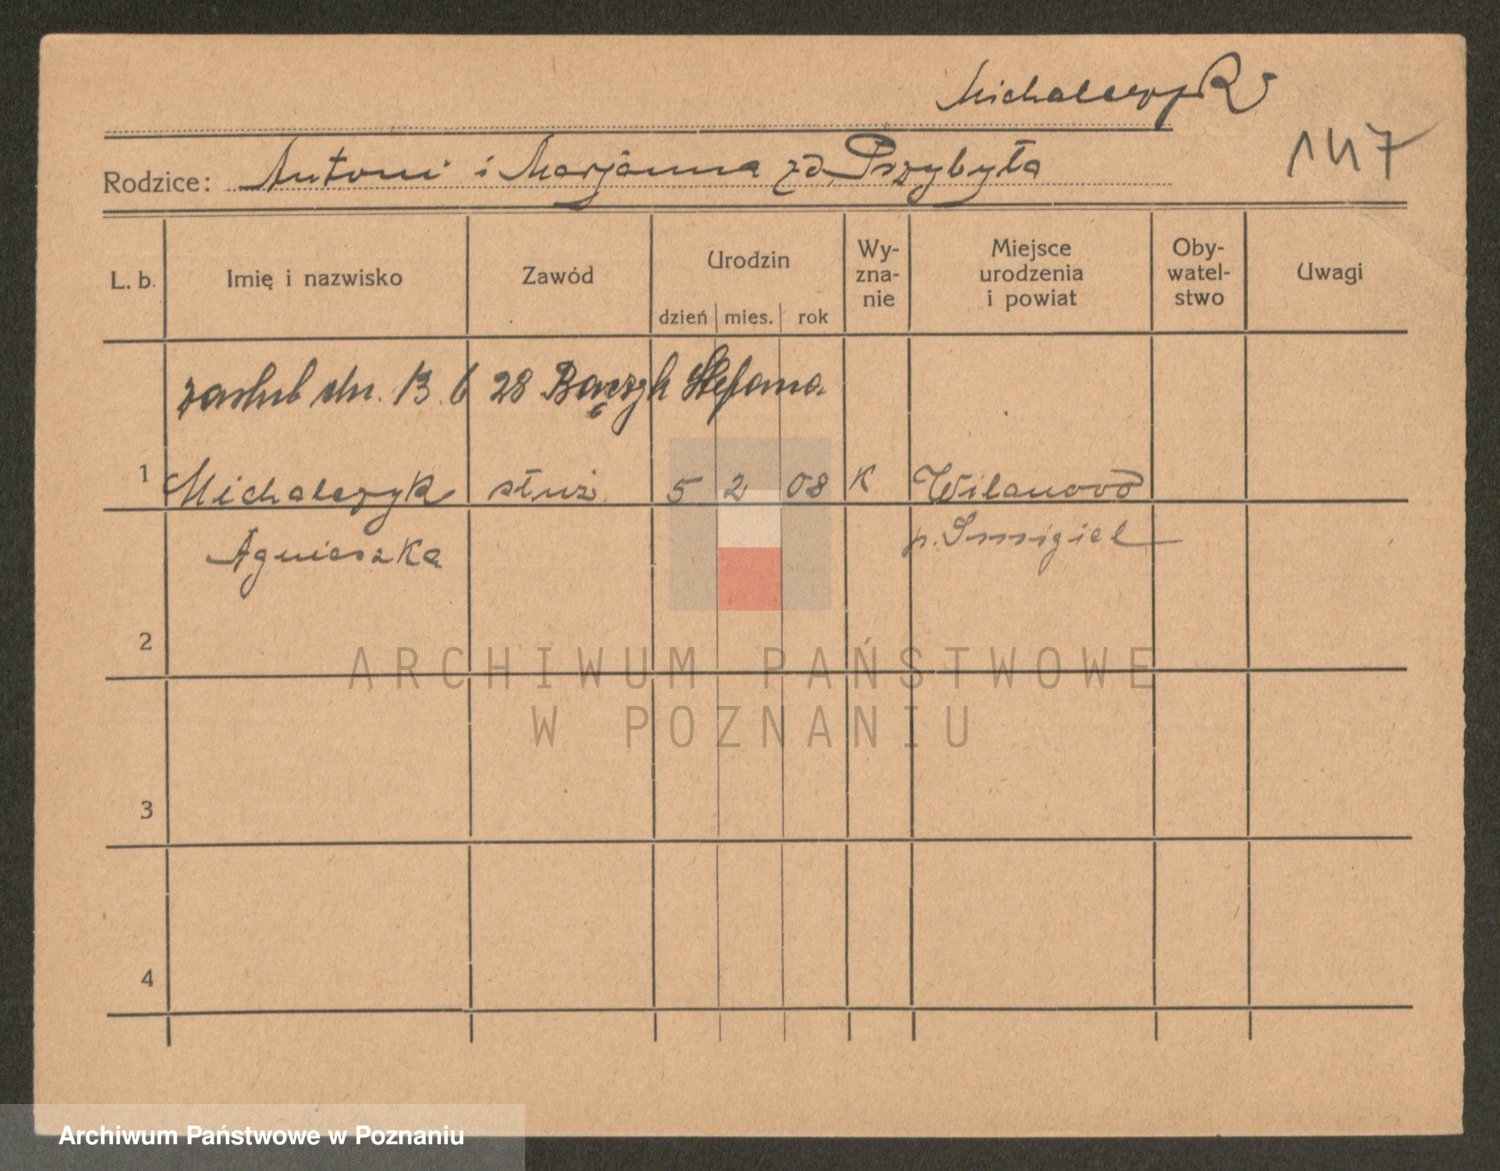 Michalczyk
147
Rodzice: Antoni i Marjanna zd. Przybyła
L. b. Imię i nazwisko Zawód Urodzin Wy-zna-nie Miejsce urodzenia i powiat Oby-watel-stwo Uwagi
dzień mies. rok
zaślub dn. 13. 6 28 Bączyk Stefana
1 Michalczyk służ. 5 2 08 K Wilanowo
Agnieszka p. Smigiel
2
3
4
ARCHIWUM PAŃSTWOWE
W POZNANIU
Archiwum Państwowe w Poznaniu